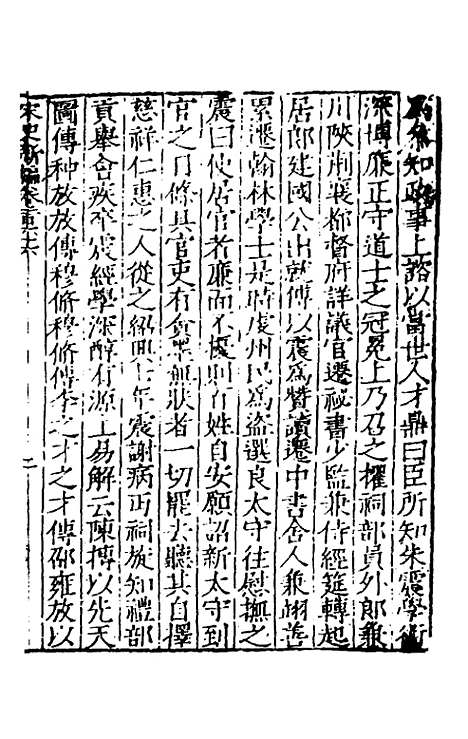 為參知政事上諮以當世人才鼎曰臣所知朱震學術
深博廉正守道士之冠冕上乃召之擢祠部員外郎兼
川陝荆襄都督府詳議官遷祕書少監兼侍經筵轉起
居郎建國公出就傅以震為贊讀遷中書舍人兼翊善
累遷翰林學士是時虔州民為盜選良太守往慰撫之
震曰使居官者廉而不擾則百姓自安願詔新太守到
官之日條具官吏有貪墨無狀者一切罷去聽其自擇
慈祥仁惠之人從之紹興七年震謝病丐祠旋知禮部
貢舉會疾卒震經學深醇有源上易解云陳摶以先天
圖傳种放放傳穆脩穆脩傳李之才之才傳邵雍放以
宋史新編卷一百六十六